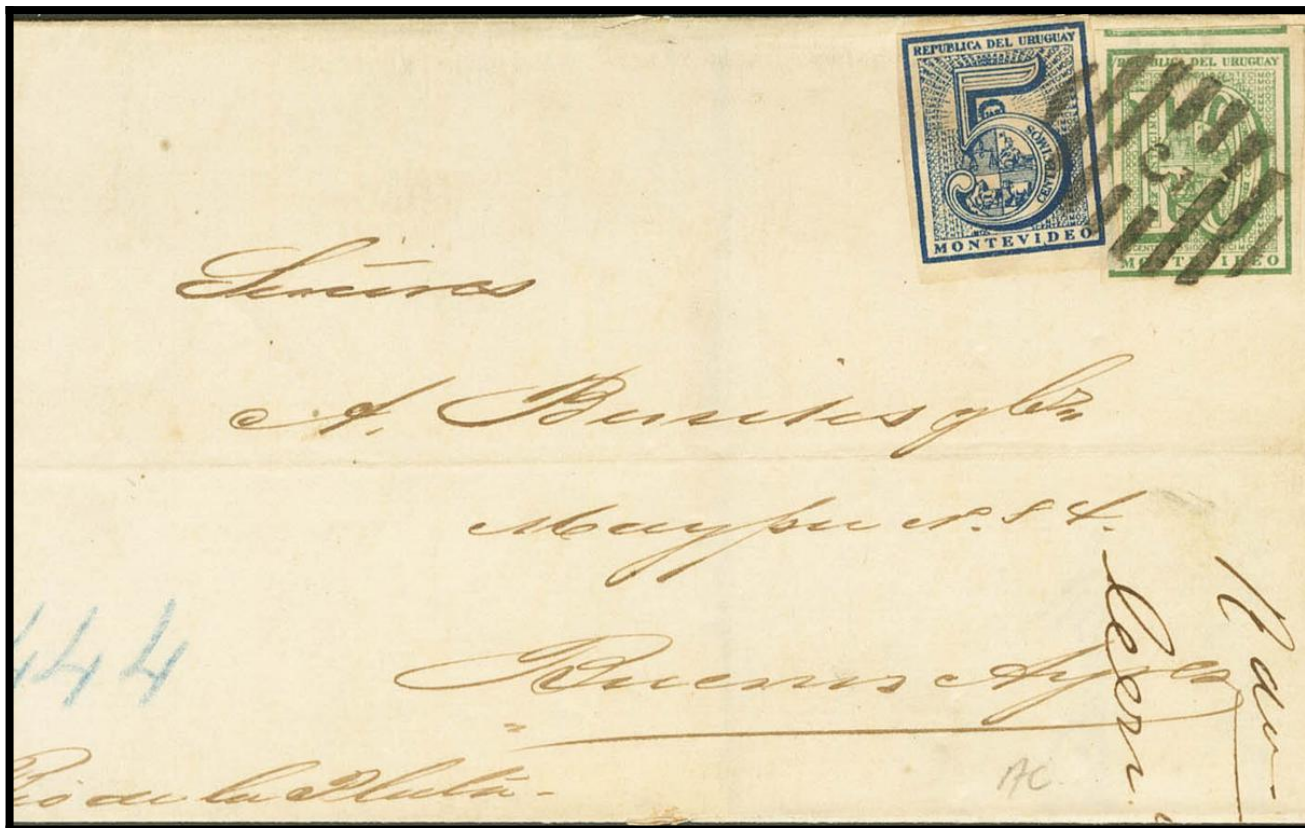 REPUBLICA DEL URUGUAY
5
CENTECIMOS
MONTEVIDEO
REPUBLICA DEL URUGUAY
10
MONTEVIDEO
Señores
A.
Maypu N. 84.
Buenos Ayres
444
Rio de la Plata
AC